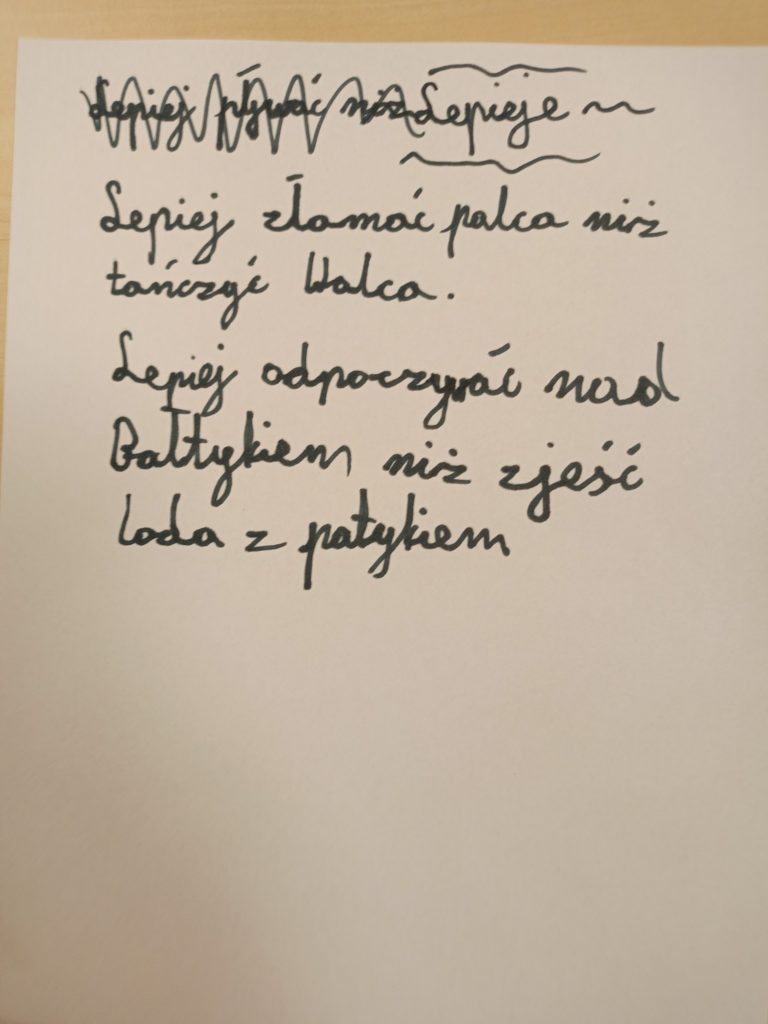 Lepiej pływać niż Lepieje ~
Lepiej złamać palca niż
tańczyć Walca.
Lepiej odpoczywać nad
Bałtykiem niż zjeść
loda z patykiem